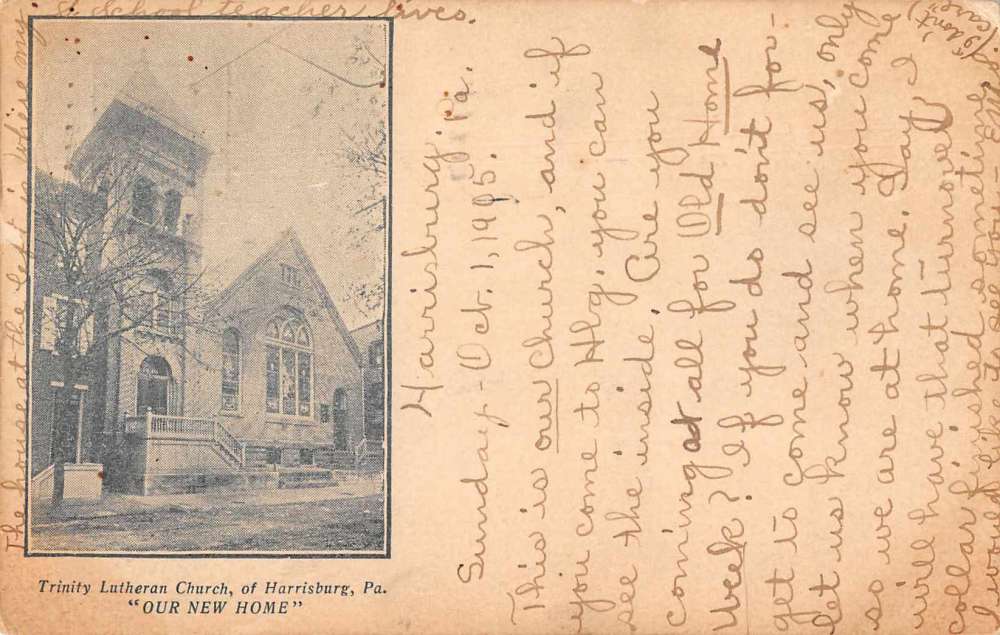 Trinity Lutheran Church, of Harrisburg, Pa.
"OUR NEW HOME"
Harrisburg, Pa.
Sunday - Oct. 1, 1905.
This is our Church, and if
you come to Hbg. you can
see the inside. Are you
coming at all for Old Home
Week? If you do don't for-
get to come and see us, only
let us know when you come
so we are at home. Say I
will have that turnover
collar finished sometime,
I would like to sell you
("don't
care")
The house at the left is where my
S. School teacher lives.